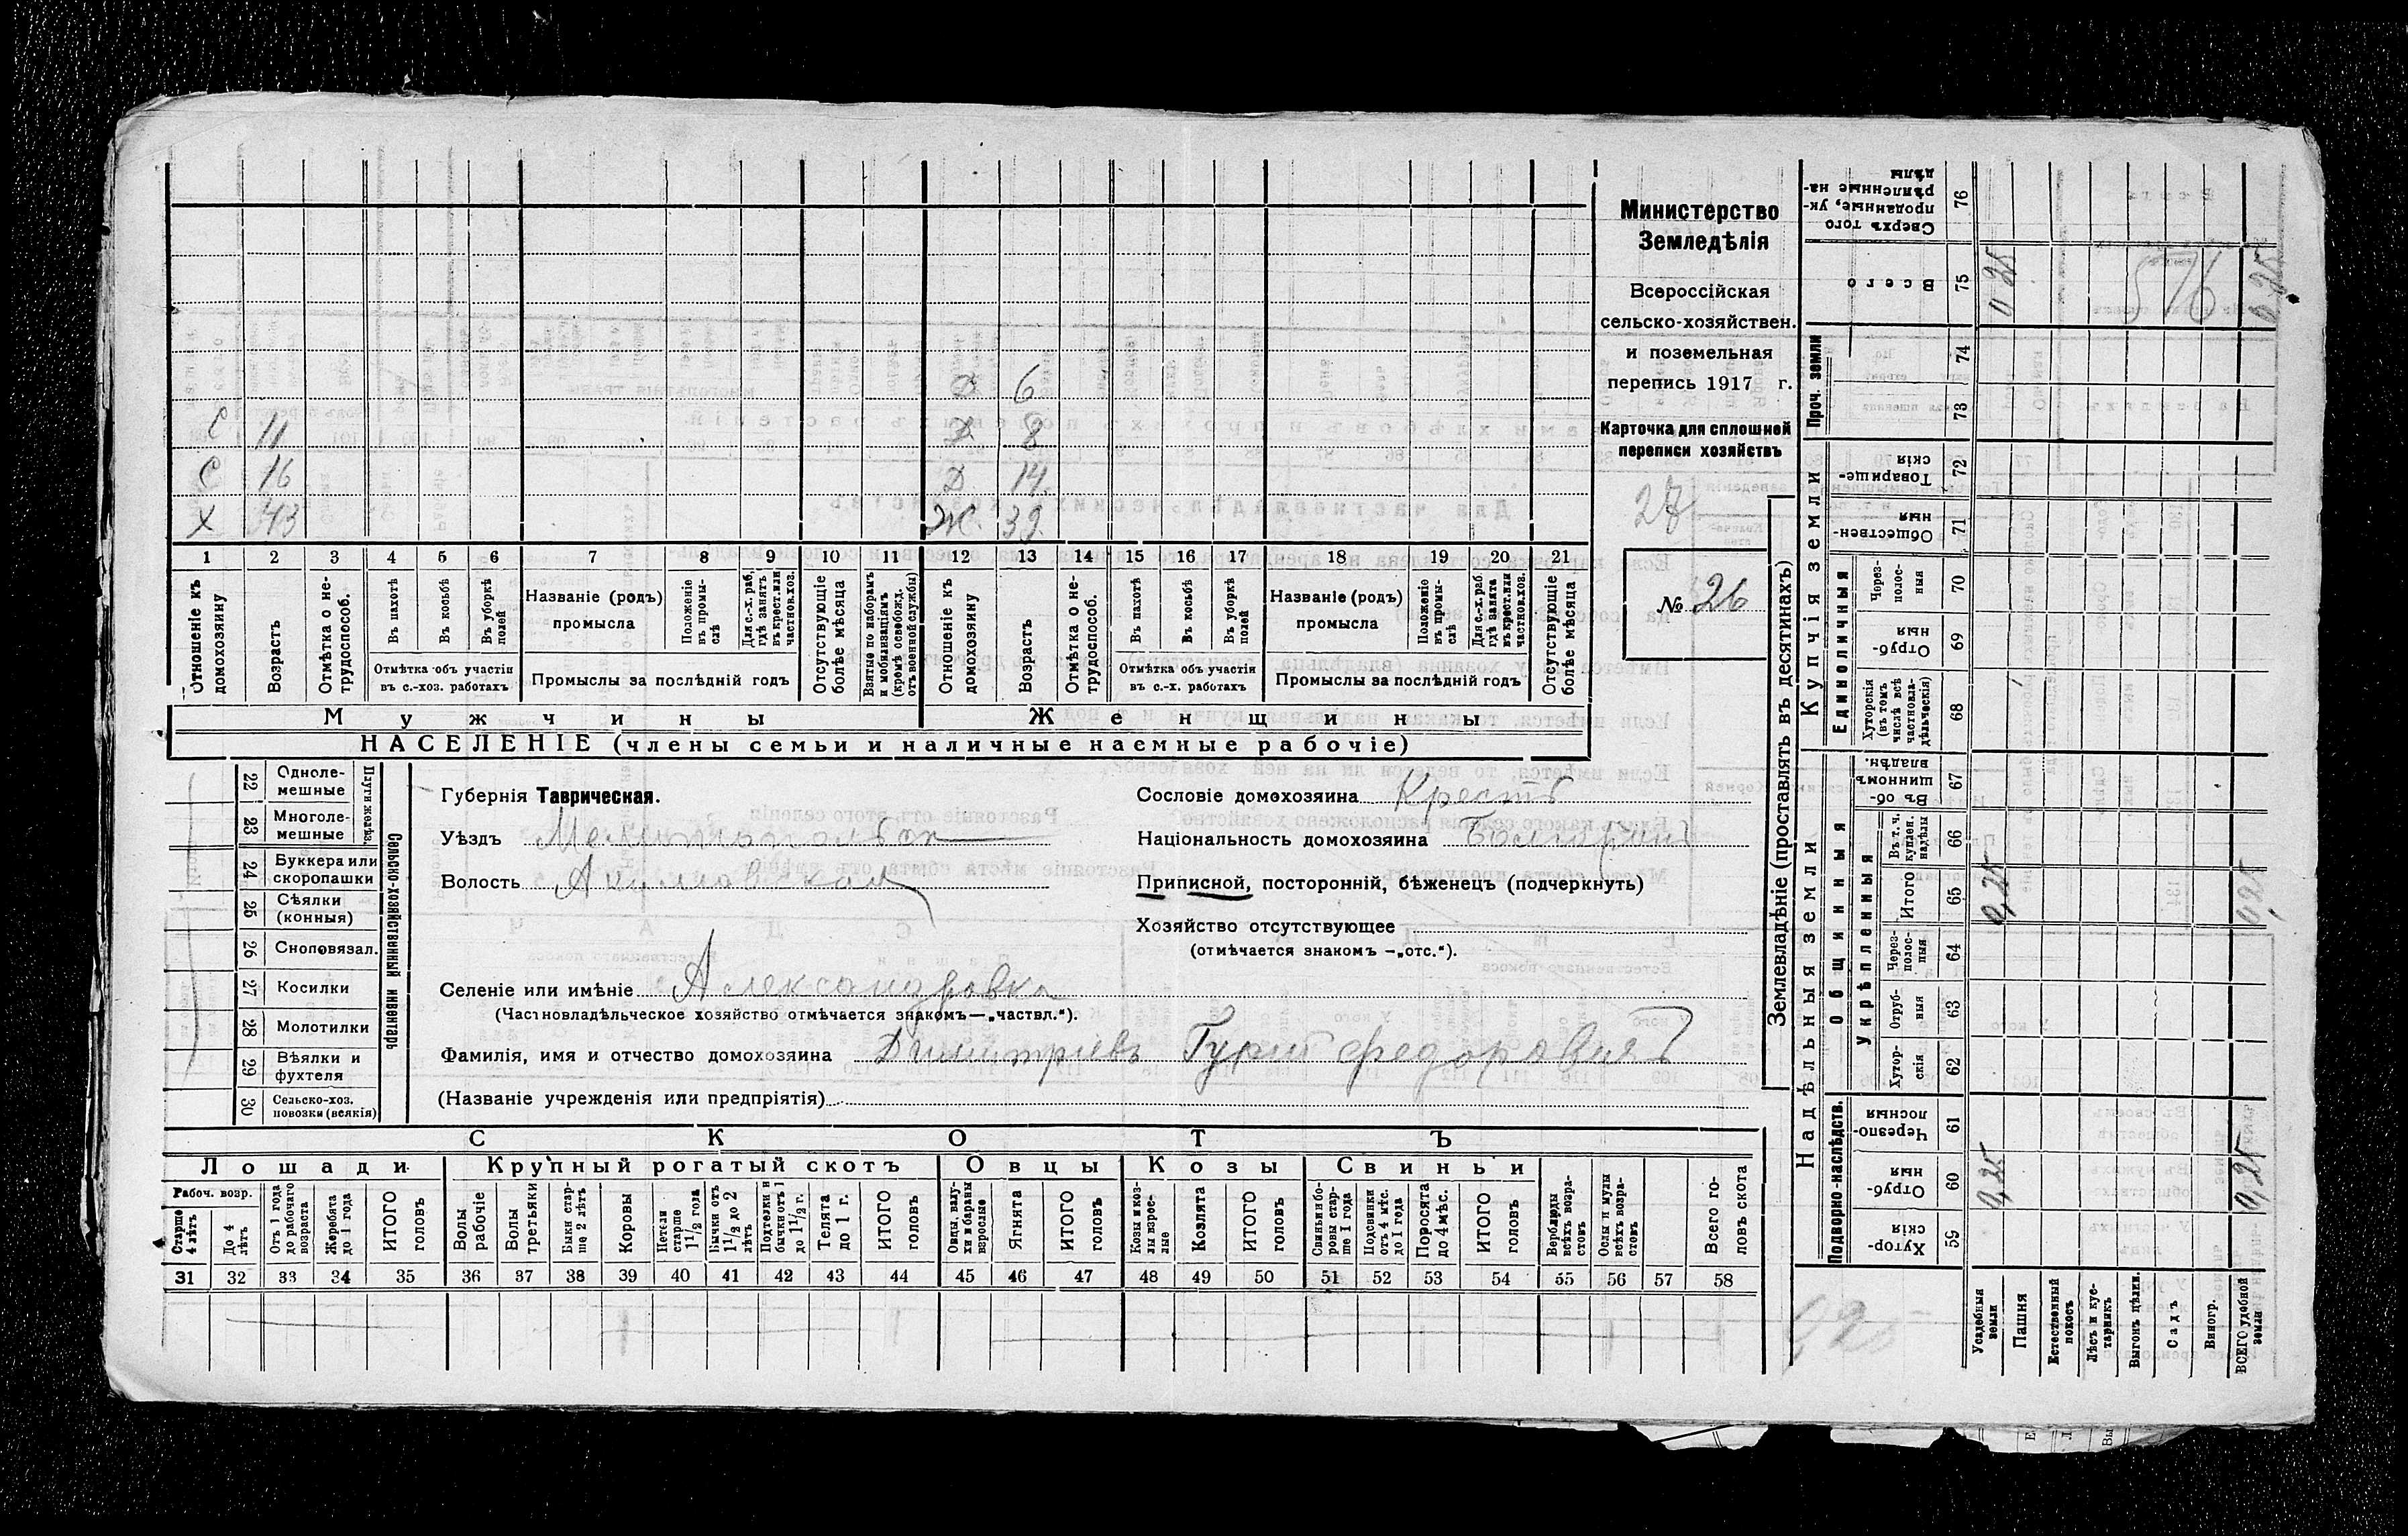 Министерство
Земледѣлія
Всероссійская
сельско-хозяйствен.
и поземельная
перепись 1917 г.
Карточка для сплошной
переписи хозяйствъ
27
№ 26
Д 6
С 11 Д 8
С 16 Д 14
Х 43 Ж. 39
1 2 3 4 5 6 7 8 9 10 11 12 13 14 15 16 17 18 19 20 21
Отношеніе къ домохозяину
Возрастъ
Отмѣтка о не-трудоспособ.
Въ пахотѣ
Въ косьбѣ
Въ уборкѣ полей
Отмѣтка объ участіи въ с.-хоз. работахъ
Названіе (родъ) промысла
Положеніе въ промы-слѣ
Для с.-х. раб., гдѣ занятъ въ крест. или частнов. хоз.
Промыслы за послѣдній годъ
Отсутствующіе болѣе мѣсяца
Взятые по наборамъ и мобилизаціямъ (кромѣ освобожд. отъ военной службы)
Отношеніе къ домохозяину
Возрастъ
Отмѣтка о не-трудоспособ.
Въ пахотѣ
Въ косьбѣ
Въ уборкѣ полей
Отмѣтка объ участіи въ с.-х. работахъ
Названіе (родъ) промысла
Положеніе въ промы-слѣ
Для с.-х. раб. гдѣ занята въ крест. или частнов. хоз.
Промыслы за послѣдній годъ
Отсутствующіе болѣе мѣсяца
Мужчины Женщины
НАСЕЛЕНІЕ (члены семьи и наличные наемные рабочіе)
Сельско-хозяйственный инвентарь
Плуги желѣз.
22 Однолемешные
23 Многолемешные
24 Буккера или скоропашки
25 Сѣялки (конныя)
26 Сноповязал.
27 Косилки
28 Молотилки
29 Вѣялки и фухтеля
30 Сельско-хоз. повозки (всякія)
Губернія Таврическая.
Уѣздъ Мелитопольск
Волость Акимовская
Селеніе или имѣніе Александровка
(Частновладѣльческое хозяйство отмѣчается знакомъ—„частвл.“).
Фамилія, имя и отчество домохозяина Димитріевъ Гурій Федоровичъ
(Названіе учрежденія или предпріятія)
Сословіе домохозяина Крестъ
Національность домохозяина Болгаринъ
Приписной, посторонній, бѣженецъ (подчеркнуть)
Хозяйство отсутствующее
(отмѣчается знакомъ —„отс.“).
СКОТЪ
Лошади Крупный рогатый скотъ Овцы Козы Свиньи
Рабоч. возр.
Старше 4 лѣтъ
До 4 лѣтъ
Отъ 1 года до рабочаго возраста
Жеребята до 1 года
ИТОГО головъ
Волы рабочіе
Волы третьяки
Быки старше 2 лѣтъ
Коровы
Нетели старше 1½ года
Бычки отъ 1½ до 2 лѣтъ
Подтелки и бычки отъ 1 до 1½ г.
Телята до 1 г.
ИТОГО головъ
Овцы, валухи и бараны взрослые
Ягнята
ИТОГО головъ
Козы и козлы взрослые
Козлята
ИТОГО головъ
Свиньи и боровы старше 1 года
Подсвинки отъ 4 мѣс. до 1 года
Поросята до 4 мѣс.
ИТОГО головъ
Верблюды всѣхъ возрастовъ
Ослы и мулы всѣхъ возрастовъ
Всего головъ скота
31 32 33 34 35 36 37 38 39 40 41 42 43 44 45 46 47 48 49 50 51 52 53 54 55 56 57 58
Землевладѣніе (проставлять въ десятинахъ)
Надѣльныя земли
Купчія земли
Проч. земли
Подворно-наслѣдств.
Общинныя
Укрѣпленныя
Единоличныя
Сверхъ того проданные, укрѣпленные надѣлы 76
Всего 75 0 25 576 0,25
74
73
Товарищескія 72
Общественныя 71
Через-полосныя 70
Отрубныя 69
Хуторскія (въ томъ числѣ всѣ частновладѣльческія) 68
Въ общинномъ владѣн. 67
Въ т. ч. куплен. надѣлы 66
Итого 65 0,25 0,25
Через-полосныя 64
Отрубныя 63
Хуторскія 62
Черезполосныя 61
Отрубныя 60 0,25 0,25
Хуторскія 59
Усадебныя земли
Пашня
Естественный покосъ
Лѣсъ и кустарникъ
Выгонъ цѣлин.
Садъ
Виногр.
ВСЕГО удобной земли